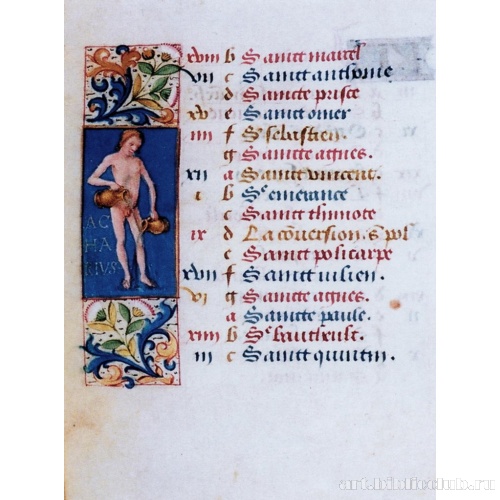 xviii b Sainct marcel
vii c Sainct anthoine
d Saincte prisce
xv e Sainct omer
iiii f S. sebastien.
g Saincte agnes.
xii a Sainct vincent.
i b Se emerance
c Sainct thimote
ix d La cōversion. s. pol
e Sainct policarpe
xvii f Sainct iulien.
vi g Saincte agnes.
a Saincte paule.
xiiii b Se baulteult.
iii c Sainct quintin.
AC
HA
RIVS
art.biblioclub.ru